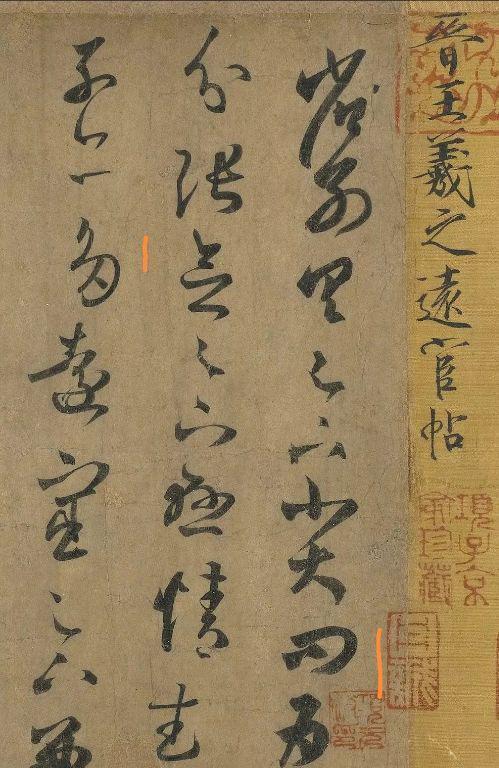 晉王羲之遠宦帖
項子京家珍藏
省別具足下小大問為
分張念足下懸情武
子亦多遠宦足下兼